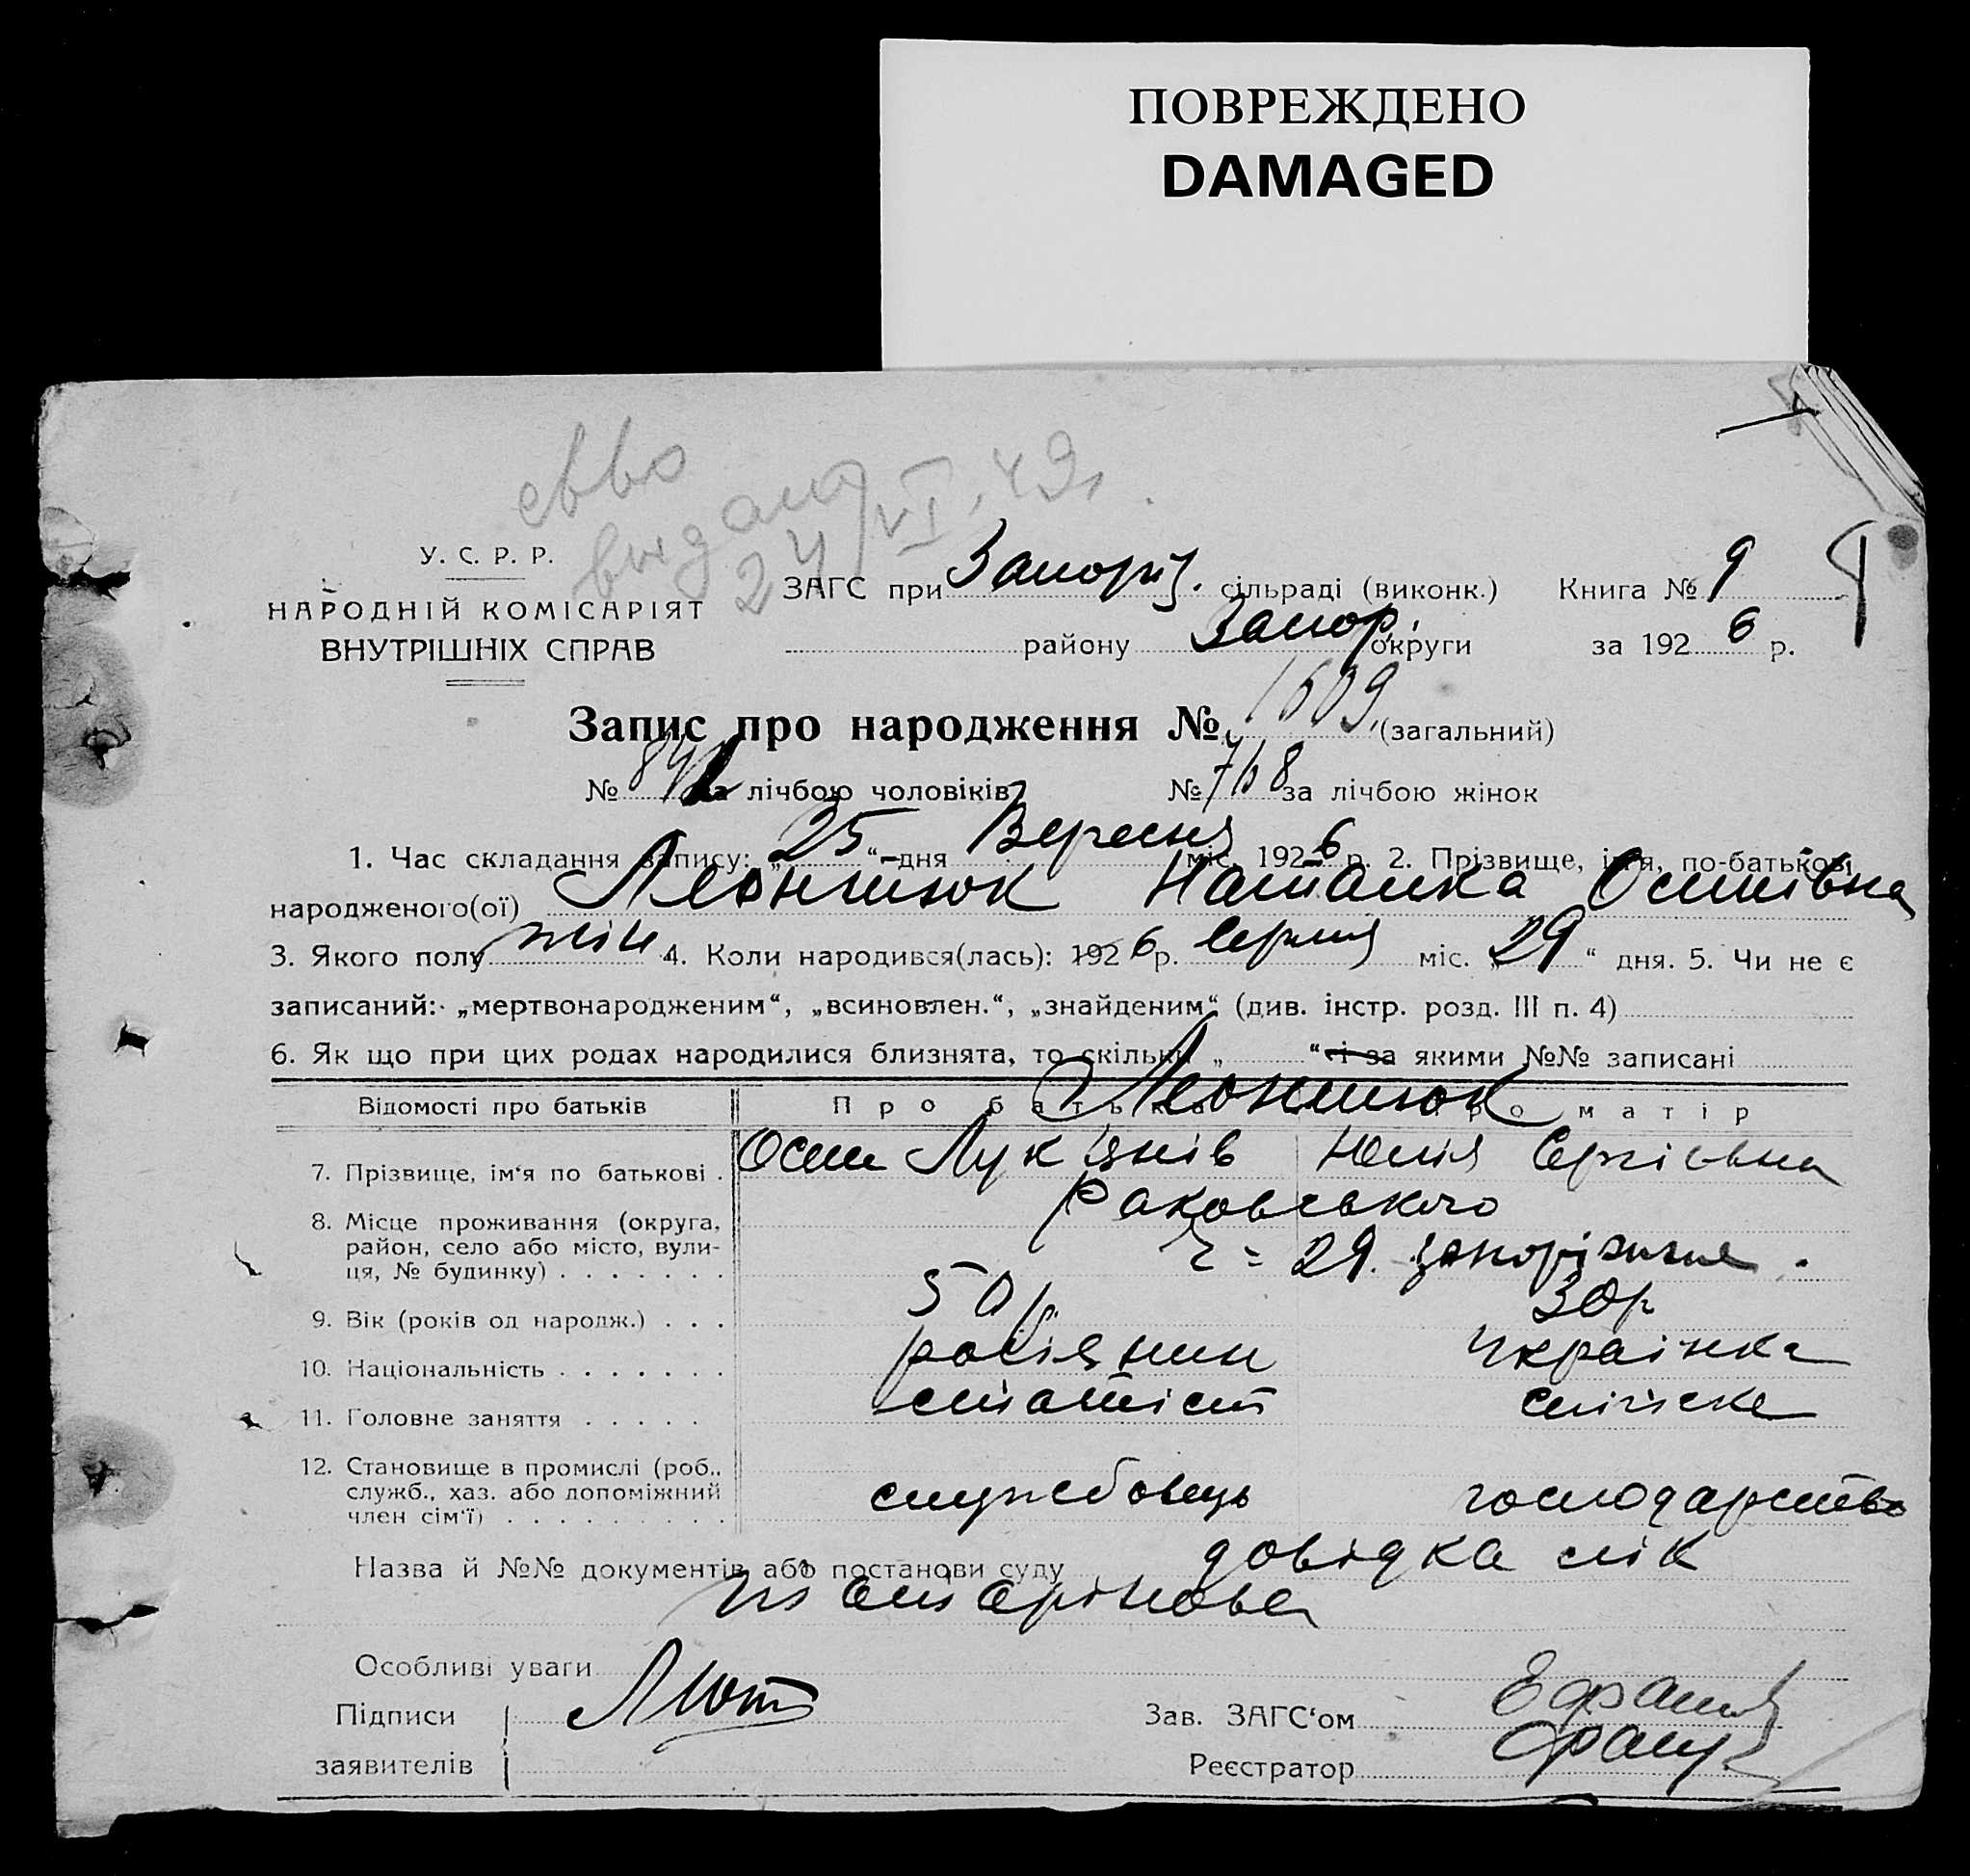 ПОВРЕЖДЕНО
DAMAGED
выдано
24/VI.49г.
У. С. Р. Р.
НАРОДНІЙ КОМІСАРІЯТ
ВНУТРІШНІХ СПРАВ
ЗАГС при Запоріз. сільраді (виконк.) Книга № 9
району Запор. округи за 1926 р.
Запис про народження № 1609 (загальний)
№ 841 за лічбою чоловіків № 768 за лічбою жінок
1. Час складання запису: „25“ дня Вересня міс. 1926 р. 2. Прізвище, ім'я, по-батькові
народженого(ої) Леонтюк Наталка Осипівна
3. Якого полу жін 4. Коли народився(лась): 1926 р. Серпня міс. „29“ дня. 5. Чи не є
записаний: „мертвонародженим“, „всиновлен.“, „знайденим“ (див. інстр. розд. III п. 4)
6. Як що при цих родах народилися близнята, то скільки „ “ і за якими №№ записані
Відомості про батьків Про батька Про матір
Леонтюк
7. Прізвище, ім'я по батькові . Осип Лук'янів Юлія Сергієвна
8. Місце проживання (округа, район, село або місто, вулиця, № будинку) . . . . . . . Раковського
29. Запоріжжя.
9. Вік (років од народж.) . . . 50 р. 30 р
10. Національність . . . . . . . росіянин Українка
11. Головне заняття . . . . .
12. Становище в промислі (роб., служб., хаз. або допоміжний член сім'ї) . . . . . . . . . службовець господарство
Назва й №№ документів або постанови суду довідка лік
Особливі уваги
Підписи
заявителів
Зав. ЗАГС'ом
Реєстратор